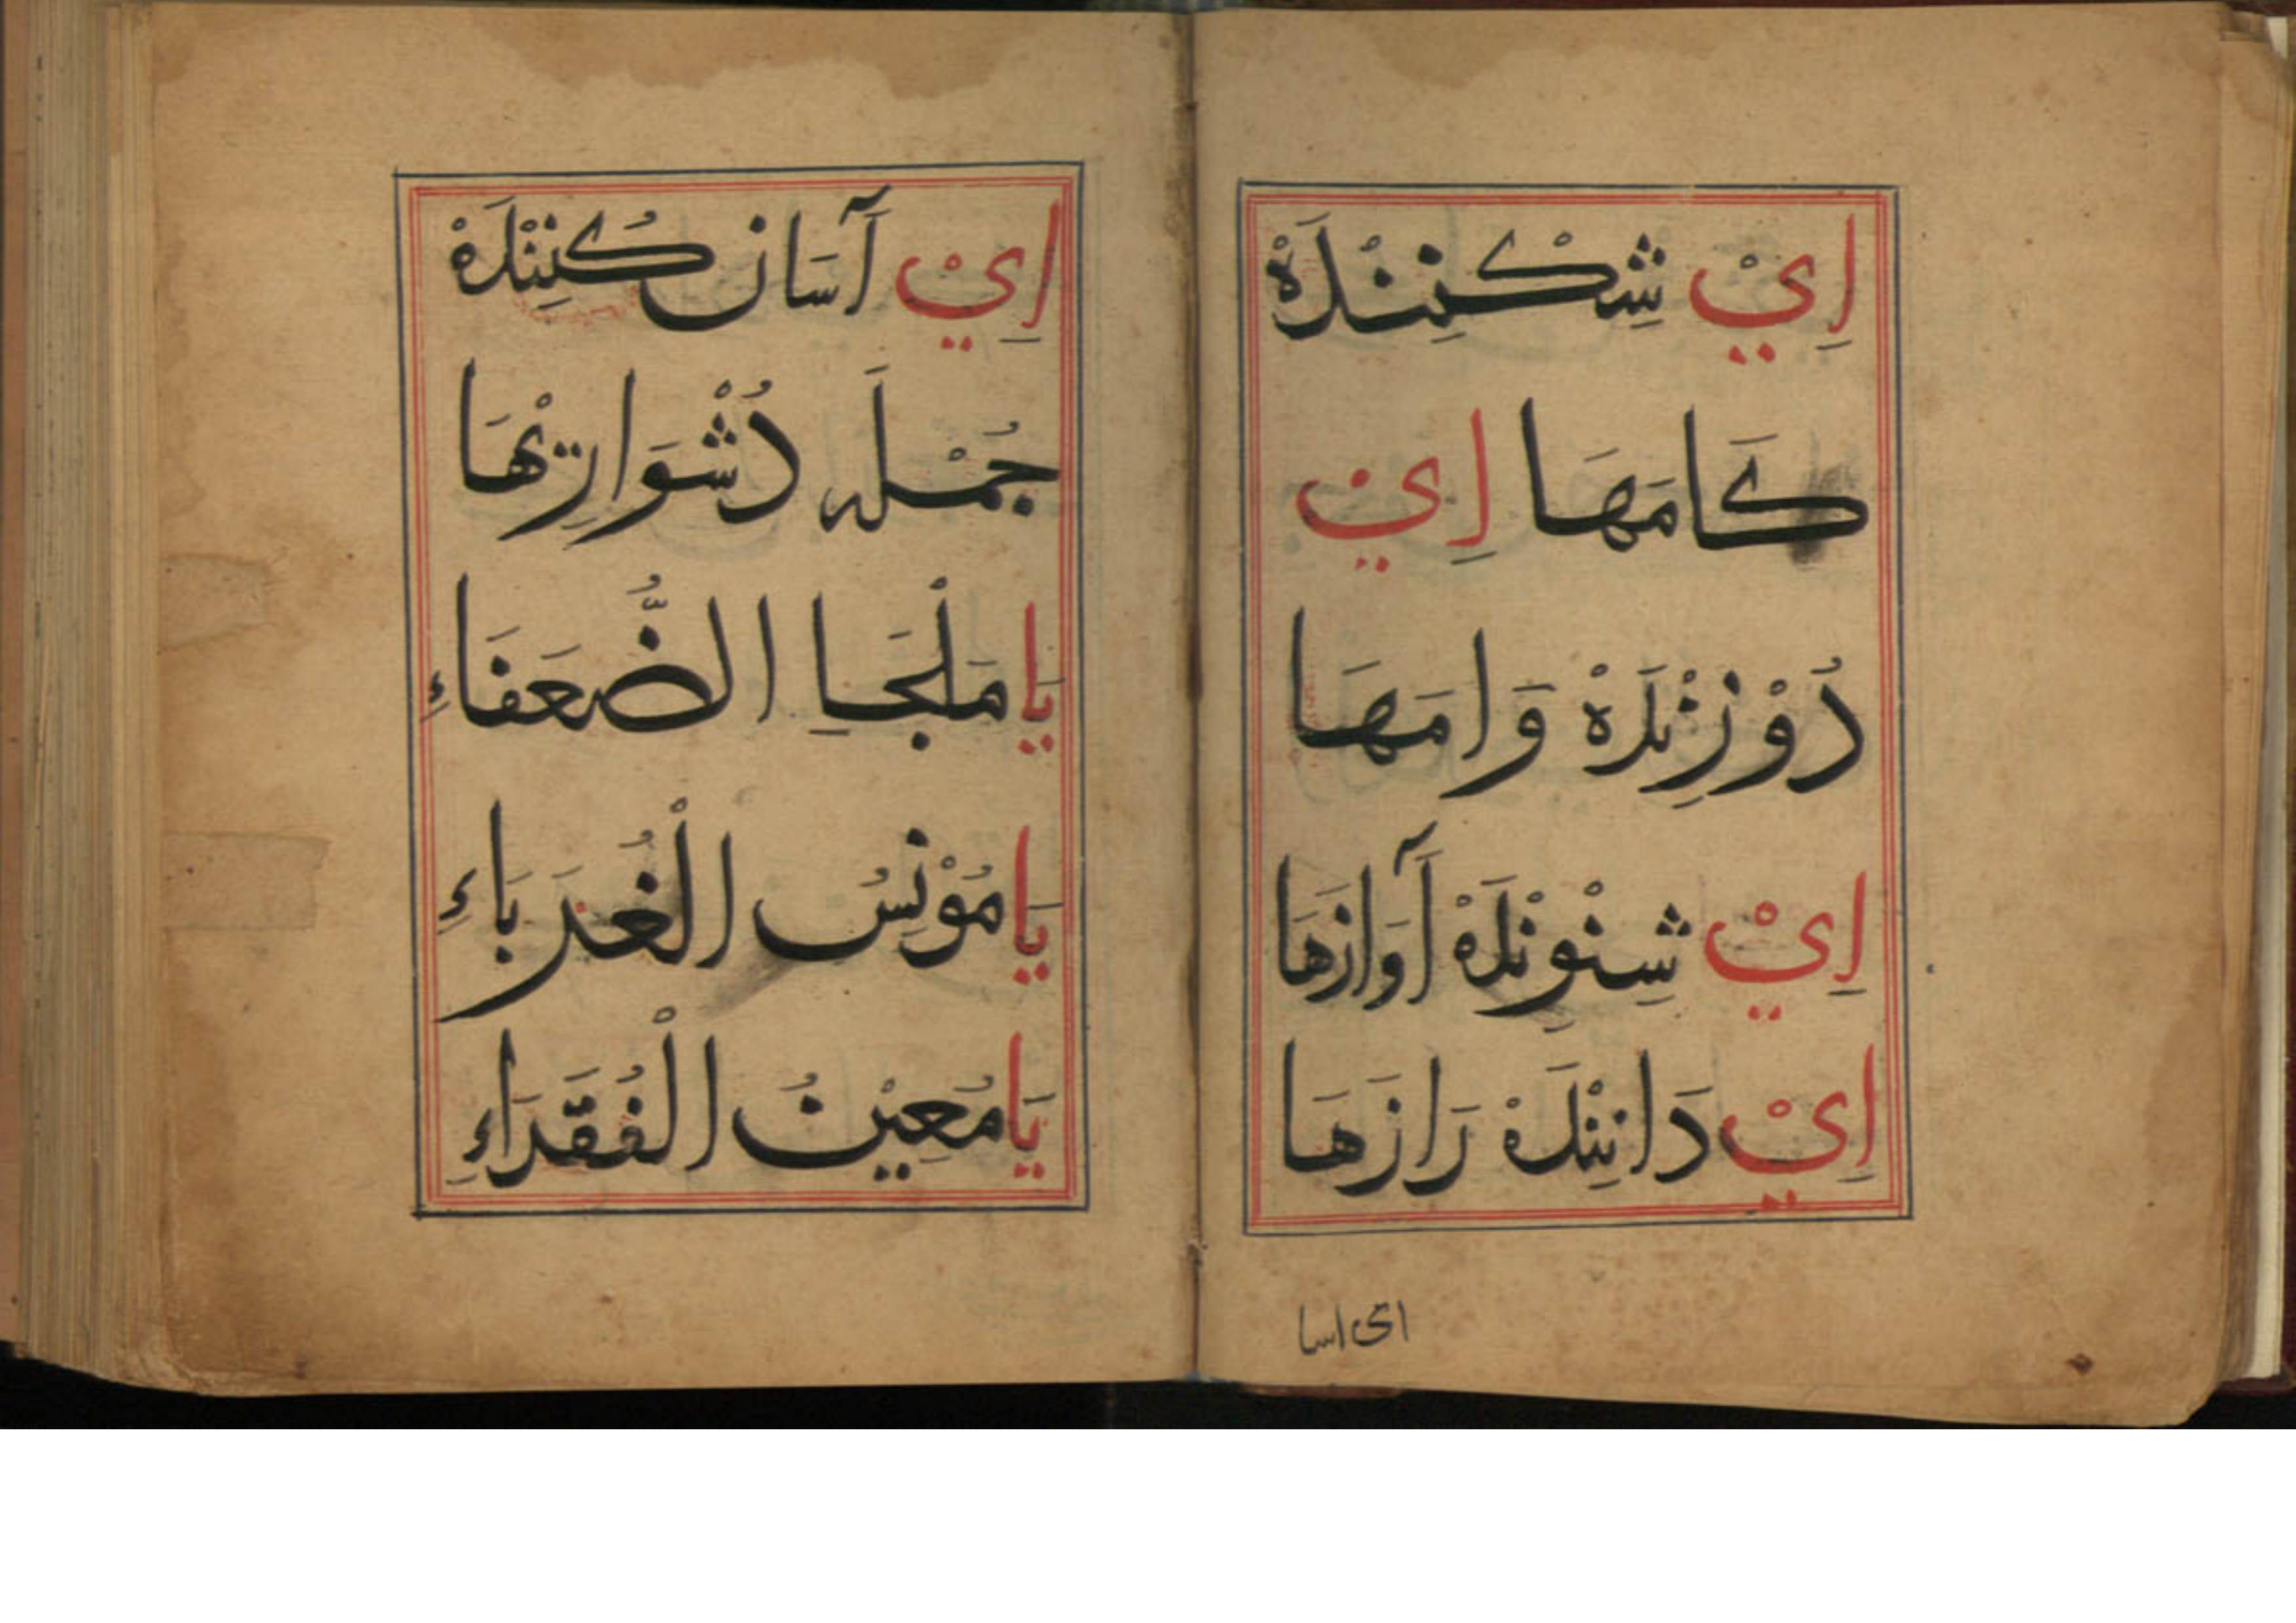 اِيْ شِكْنِنْدَهْ
كَامَهَا اِيْ
دُوْزِنْدَهْ وَامَهَا
اِيْ شِنْوِنْدَهْ آوَازهَا
اِيْ دَانِنْدَهْ رَازَهَا
ای اسا
اِيْ آسَان كُنِنْدَهْ
جُمْلَه دُشْوَارِيْهَا
يَا مَلْجَاِ الضُّعَفَاءِ
يَا مُوْنِسُ الْغُرَبَاءِ
يَا مُعِيْنُ الْفُقَرَاءِ